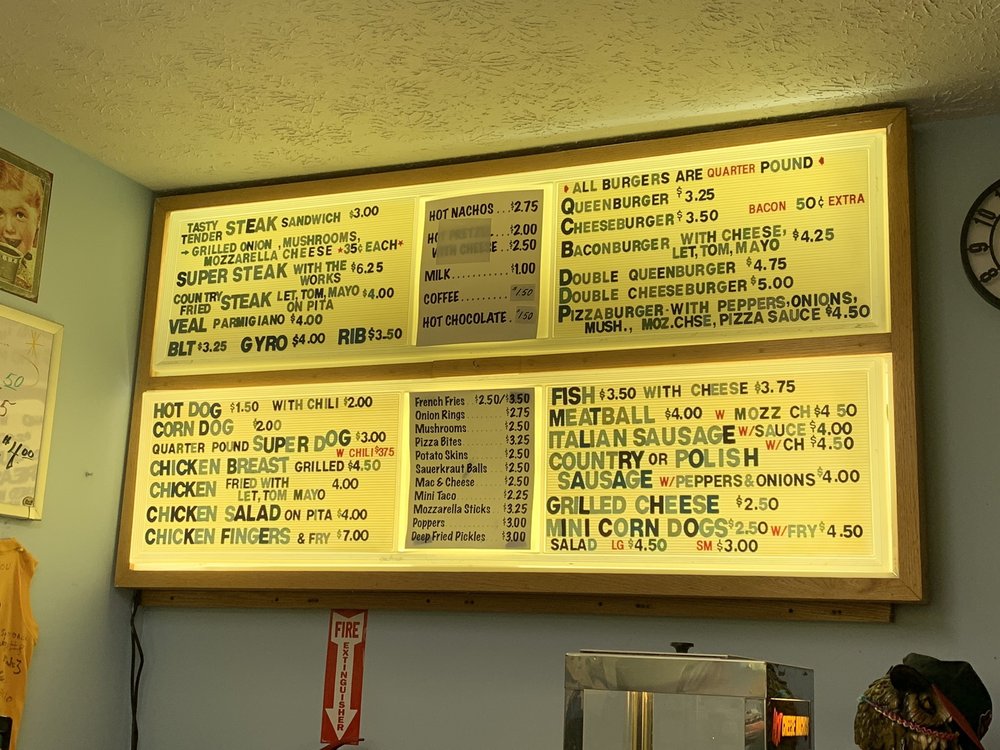 TASTY TENDER STEAK SANDWICH $3.00
→ GRILLED ONION, MUSHROOMS,
MOZZARELLA CHEESE *35¢ EACH*
SUPER STEAK WITH THE WORKS $6.25
COUNTRY FRIED STEAK LET, TOM, MAYO ON PITA $4.00
VEAL PARMIGIANO $4.00
BLT $3.25 GYRO $4.00 RIB $3.50
HOT NACHOS ... $2.75
HOT PRETZEL $2.00
WITH CHEESE ... $2.50
MILK .......... $1.00
COFFEE ......... $1.50
HOT CHOCOLATE . $1.50
ALL BURGERS ARE QUARTER POUND
QUEENBURGER $3.25
CHEESEBURGER $3.50 BACON 50¢ EXTRA
BACONBURGER WITH CHEESE, LET, TOM, MAYO $4.25
DOUBLE QUEENBURGER $4.75
DOUBLE CHEESEBURGER $5.00
PIZZABURGER-WITH PEPPERS, ONIONS,
MUSH., MOZ.CHSE, PIZZA SAUCE $4.50
HOT DOG $1.50 WITH CHILI $2.00
CORN DOG $2.00
QUARTER POUND SUPER DOG $3.00
W CHILI $375
CHICKEN BREAST GRILLED $4.50
CHICKEN FRIED WITH LET, TOM MAYO 4.00
CHICKEN SALAD ON PITA $4.00
CHICKEN FINGERS & FRY $7.00
French Fries $2.50/$3.50
Onion Rings $2.75
Mushrooms $2.50
Pizza Bites $3.25
Potato Skins $2.50
Sauerkraut Balls $2.50
Mac & Cheese $2.50
Mini Taco $2.25
Mozzarella Sticks $3.25
Poppers $3.00
Deep Fried Pickles $3.00
FISH $3.50 WITH CHEESE $3.75
MEATBALL $4.00 W MOZZ CH $4 50
ITALIAN SAUSAGE W/SAUCE $4.00
W/CH $4.50
COUNTRY OR POLISH
SAUSAGE W/PEPPERS & ONIONS $4.00
GRILLED CHEESE $2.50
MINI CORN DOGS $2.50 W/FRY $4.50
SALAD LG $4.50 SM $3.00
FIRE
EXTINGUISHER